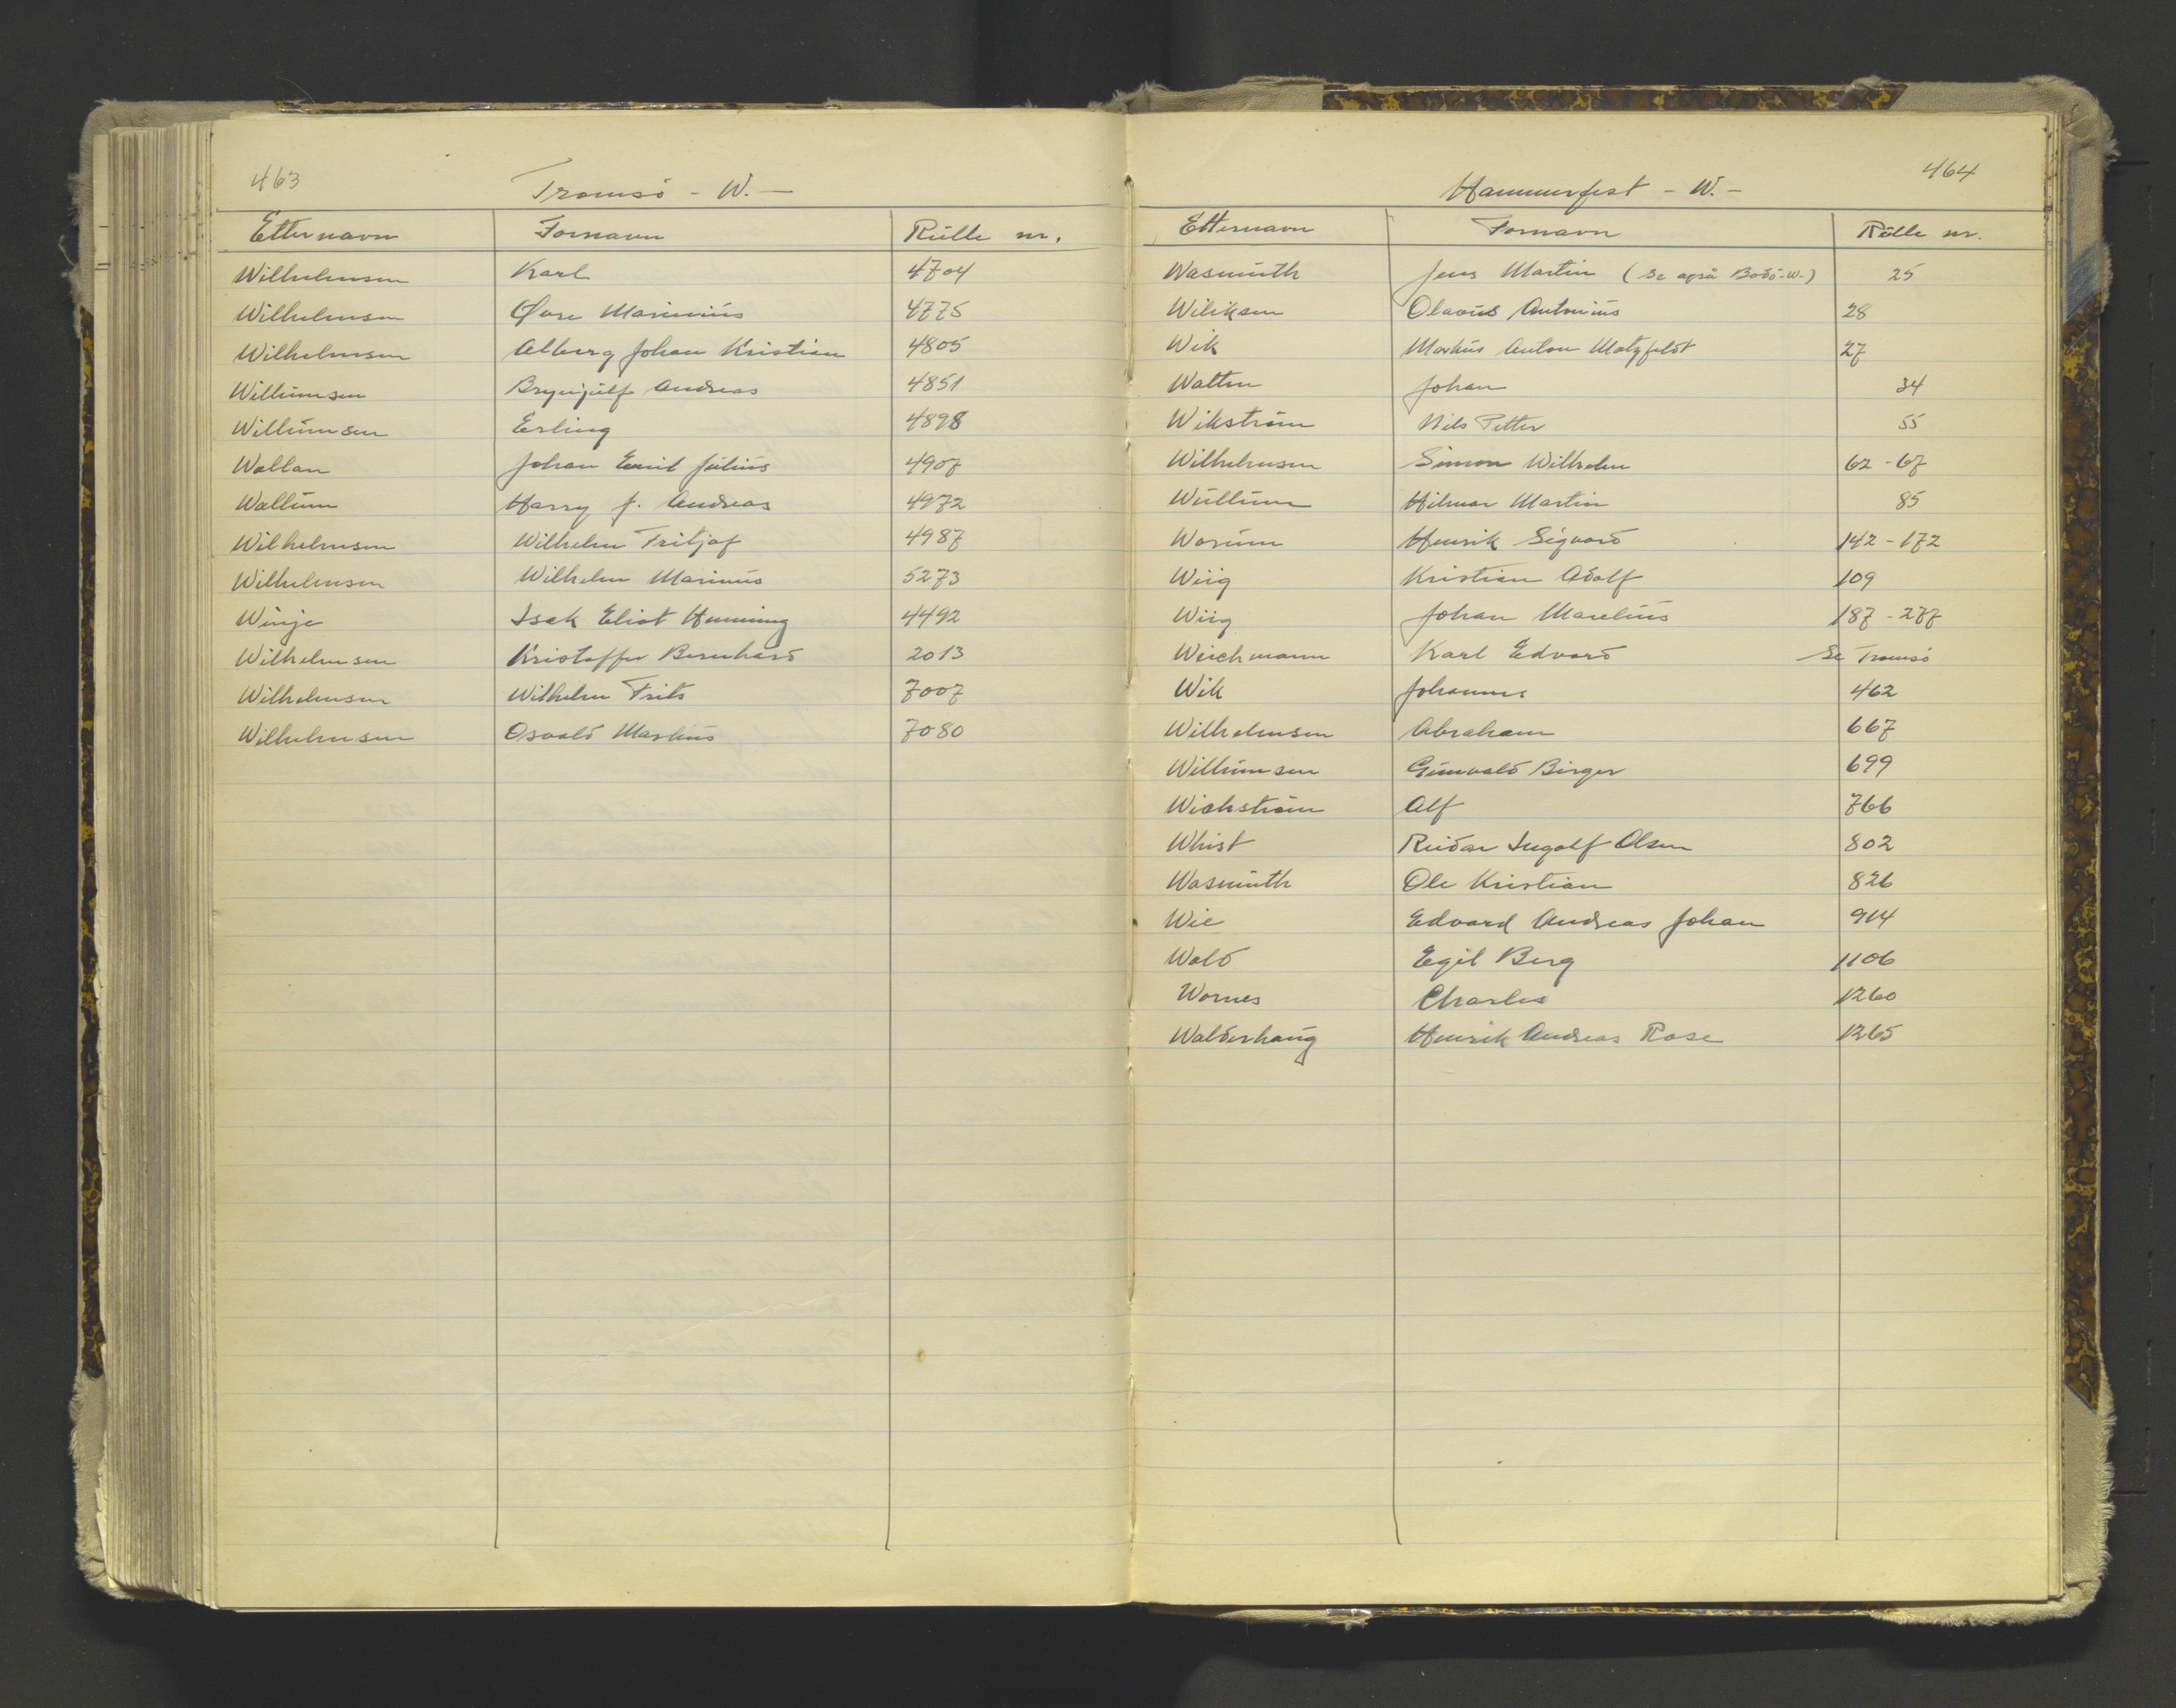 463
Tromsö - W. -
Etternavn Fornavn Rulle nr.
Wilhelmsen Karl 4704
Wilhelmsen Øvre Marinius 4775
Wilhelmsen Alberg Johan Kristian 4805
Willumsen Brynjulf Andreas 4851
Willumsen Erling 4898
Wallan Johan Emil Julius 4907
Wallum Harry J. Andreas 4972
Wilhelmsen Wilhelm Fritjof 4987
Wilhelmsen Wilhelm Marinus 5273
Winje Isak Eliot Henning 4492
Wilhelmsen Kristoffer Bernhard 2013
Wilhelmsen Wilhelm Frits 7007
Wilhelmsen Osvald Markus 7080
464
Hammerfest - W. -
Etternavn Fornavn Rulle nr.
Wasmuth Jens Martin (Se også Bodö-W-) 25
Wiliksen Olavus Antonius 28
Wik Markus Anton Motzfeldt 27
Watten Johan 34
Wikström Nils Petter 55
Wilhelmsen Simon Wilhelm 62-67
Wullum Hilmar Martin 85
Worum Henrik Sigvard 142-172
Wiig Kristian Adolf 109
Wiig Johan Marelius 187-277
Weichmann Karl Edvard Se Tromsö
Wik Johannes 462
Wilhelmsen Abraham 667
Willumsen Gunvald Birger 699
Wickström Alf 766
Whist Reidar Ingolf Olsen 802
Wasmuth Ole Kristian 826
Wie Edvard Andreas Johan 914
Wold Egil Berg 1106
Wornes Charles 1260
Walderhaug Henrik Andreas Rose 1265